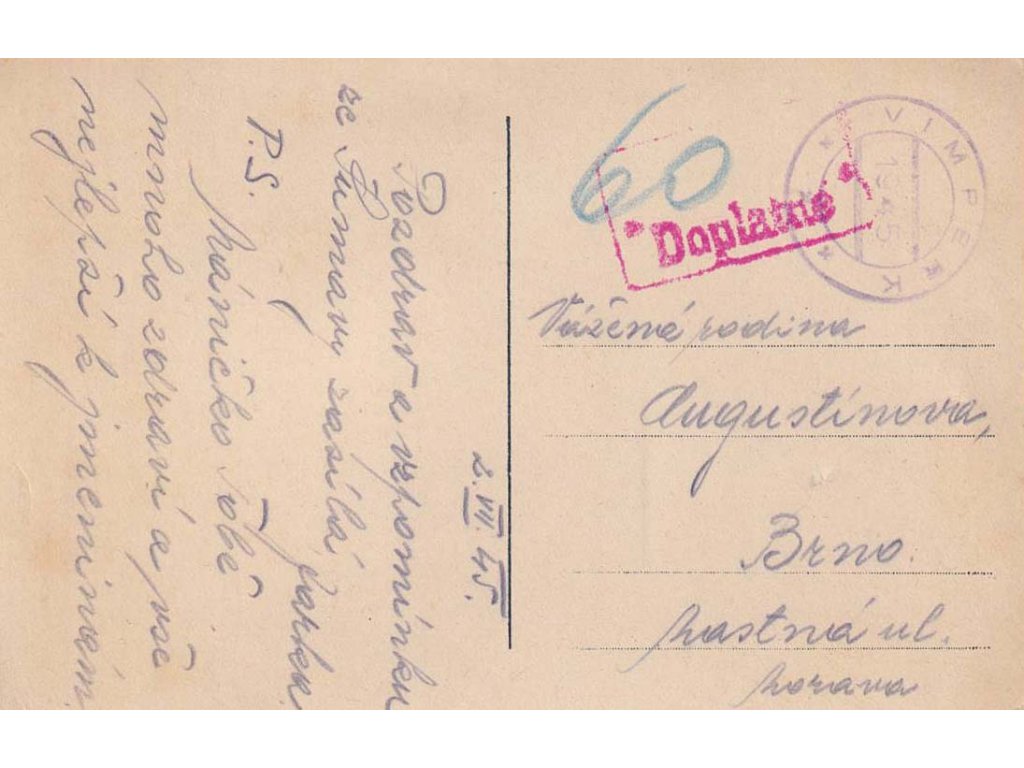 2. VII. 45.
Pozdrav a vzpomínku
ze Šumavy zasílá
Jarka
P.S.
Máničko Tobě
mnoho zdraví a vše
nejlepší k jmeninám
60
Doplatné
VIMPERK
1945
Vážená rodina
Augustinova,
Brno.
ul.
Morava